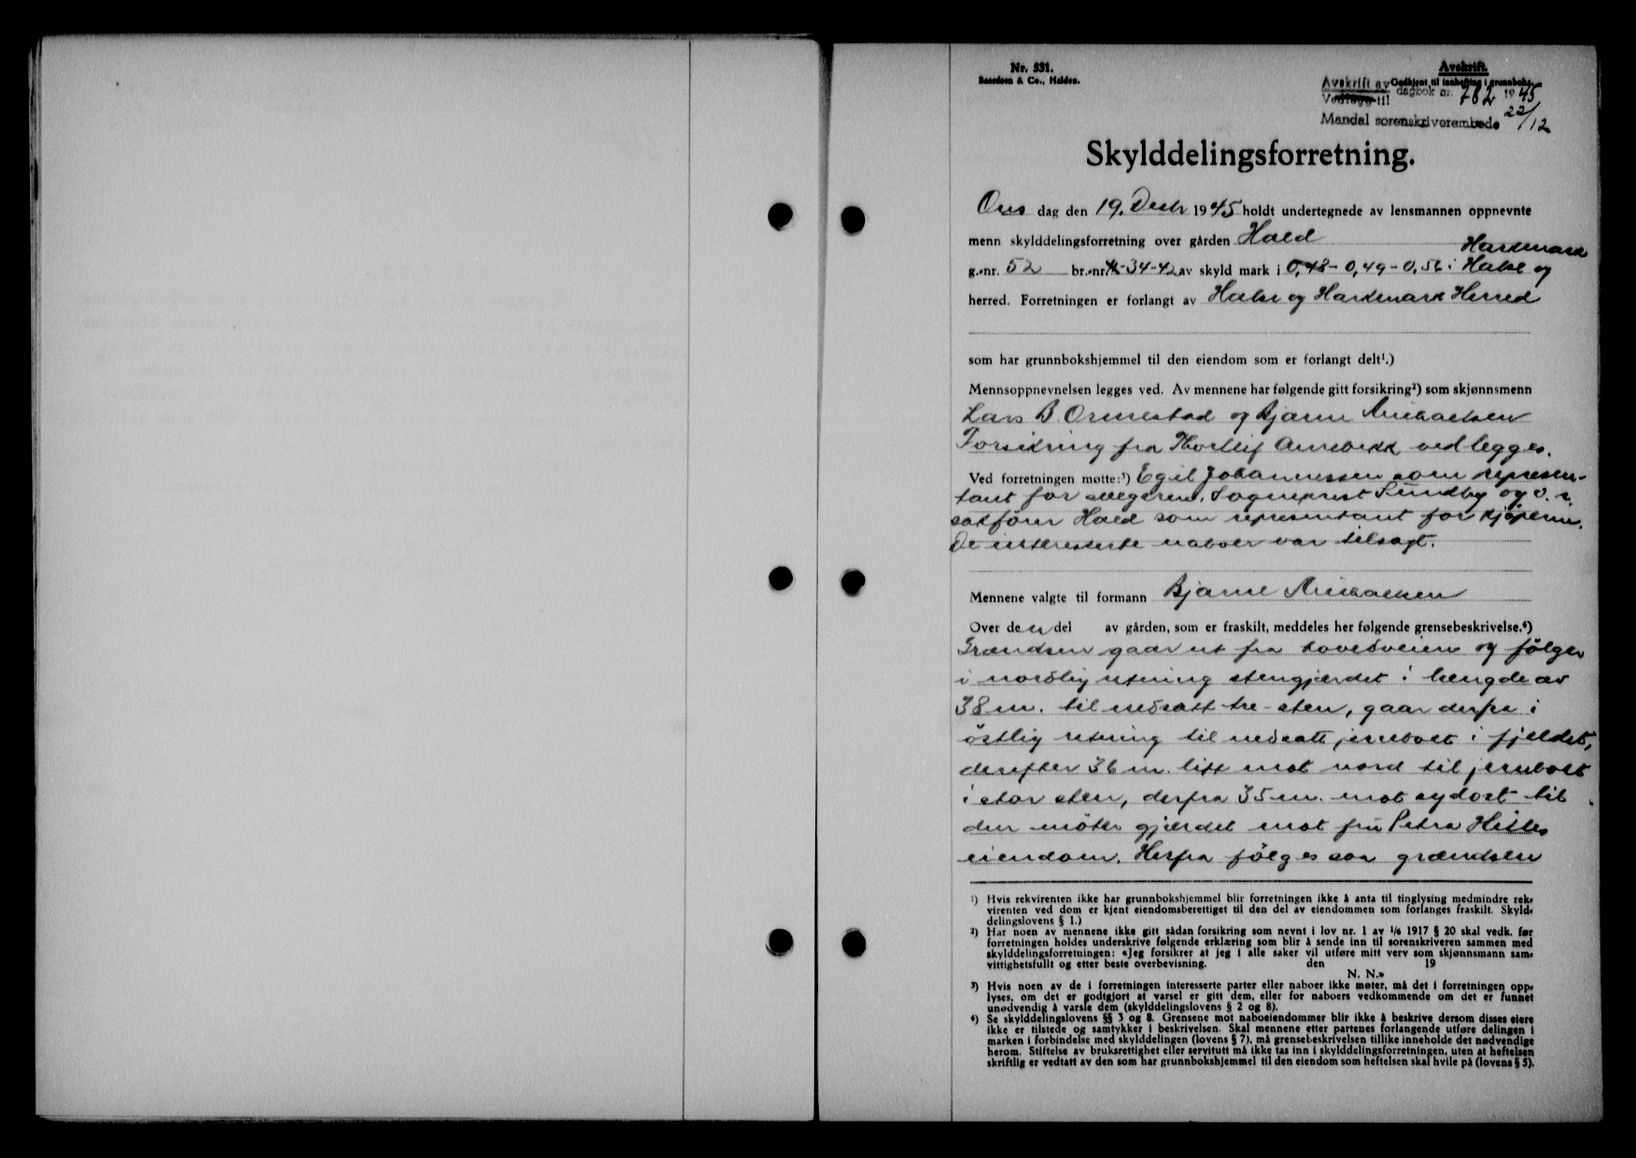 Nr. 531.
Sandsen & Co., Halden.
Avskrift.
Avskrift av Godkjent til innhefting i grunnboka
Vedlegg til dagbok nr. 782 1945
Mandal sorenskriverembede 22/12
Skylddelingsforretning.
Ons dag den 19. Desbr 1945 holdt undertegnede av lensmannen oppnevnte
menn skylddelingsforretning over gården Hald
Harkmark
g.-nr. 52 br.-nr. -34-42 av skyld mark i 0,48 - 0,49 - 0,56 i Halse og
herred. Forretningen er forlangt av Halse og Harkmark Herred
som har grunnbokshjemmel til den eiendom som er forlangt delt¹.)
Mennsoppnevnelsen legges ved. Av mennene har følgende gitt forsikring²) som skjønnsmenn
Lars B. Ormestad og Bjarne Mikaelsen
Forsikring fra Thorleif Aurebekk vedlegges.
Ved forretningen møtte:³) Egil Johannessen som represen-
tant for selgeren, Sogneprest Sundby og o.r.
sakfører Hald som representant for kjøperne.
De interesserte naboer var tilsagt.
Mennene valgte til formann Bjarne Mikaelsen
Over de n del av gården, som er fraskilt, meddeles her følgende grensebeskrivelse.⁴)
Grændsen gaar ut fra hovedveien og følger
i nordlig retning stengjærdet i længde av
38 m. til nedsatt tre-sten, gaar derfra i
østlig retning til nedsatt jernbolt i fjeldet,
derefter 36 m. litt mot nord til jernbolt
i stor sten, derfra 35 m. mot sydost til
den møter gjærdet mot fru Petra Hilles
eiendom. Herfra følges saa grændsen
¹) Hvis rekvirenten ikke har grunnbokshjemmel blir forretningen ikke å anta til tinglysing medmindre rek-
virenten ved dom er kjent eiendomsberettiget til den del av eiendommen som forlanges fraskilt. Skyld-
delingslovens § 1.)
²) Har noen av mennene ikke gitt sådan forsikring som nevnt i lov nr. 1 av 1/6 1917 § 20 skal vedk. før
forretningen holdes underskrive følgende erklæring som blir å sende inn til sorenskriveren sammen med
skylddelingsforretningen: «Jeg forsikrer at jeg i alle saker vil utføre mitt verv som skjønnsmann sam-
vittighetsfullt og etter beste overbevisning. den 19
N. N.»
³) Hvis noen av de i forretningen interesserte parter eller naboer ikke møter, må det i forretningen opp-
lyses, om det er godtgjort at varsel er gitt dem, eller for naboers vedkommende om det er funnet
unødvendig å varsle dem (skylddelingslovens § 2 og 8).
⁴) Se skylddelingslovens §§ 3 og 8. Grensene mot naboeiendommer blir ikke å beskrive dersom disses eiere
ikke er tilstede og samtykker i beskrivelsen. Skal mennene etter partenes forlangende utføre delingen i
marken i forbindelse med skylddelingen (lovens § 7), må grensebeskrivelsen tillike inneholde det nødvendige
herom. Stiftelse av bruksrettighet eller servitutt må ikke tas inn i skylddelingsforretningen, uten at heftelsen
skriftlig er vedtatt av den som har grunnbokshjemmel til den eiendom som heftelsen skal hvile på (lovens § 5).